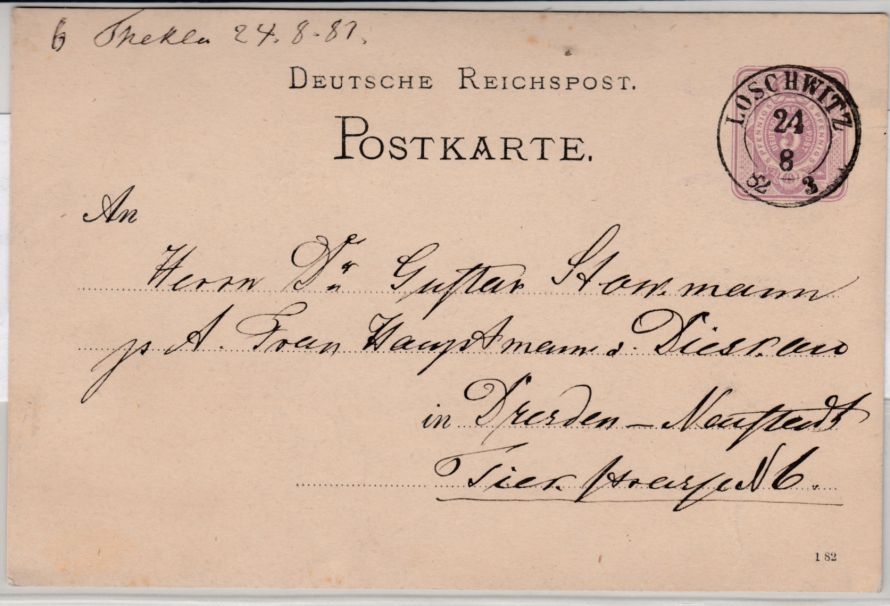 Thekla 24.8.82.
DEUTSCHE REICHSPOST.
POSTKARTE.
LOSCHWITZ
24
8
82 3
An
Herrn Dr. Gustav
A. Frau Hauptmann v. Dieskau
in Dresden – Neustadt
N 6.
1 82